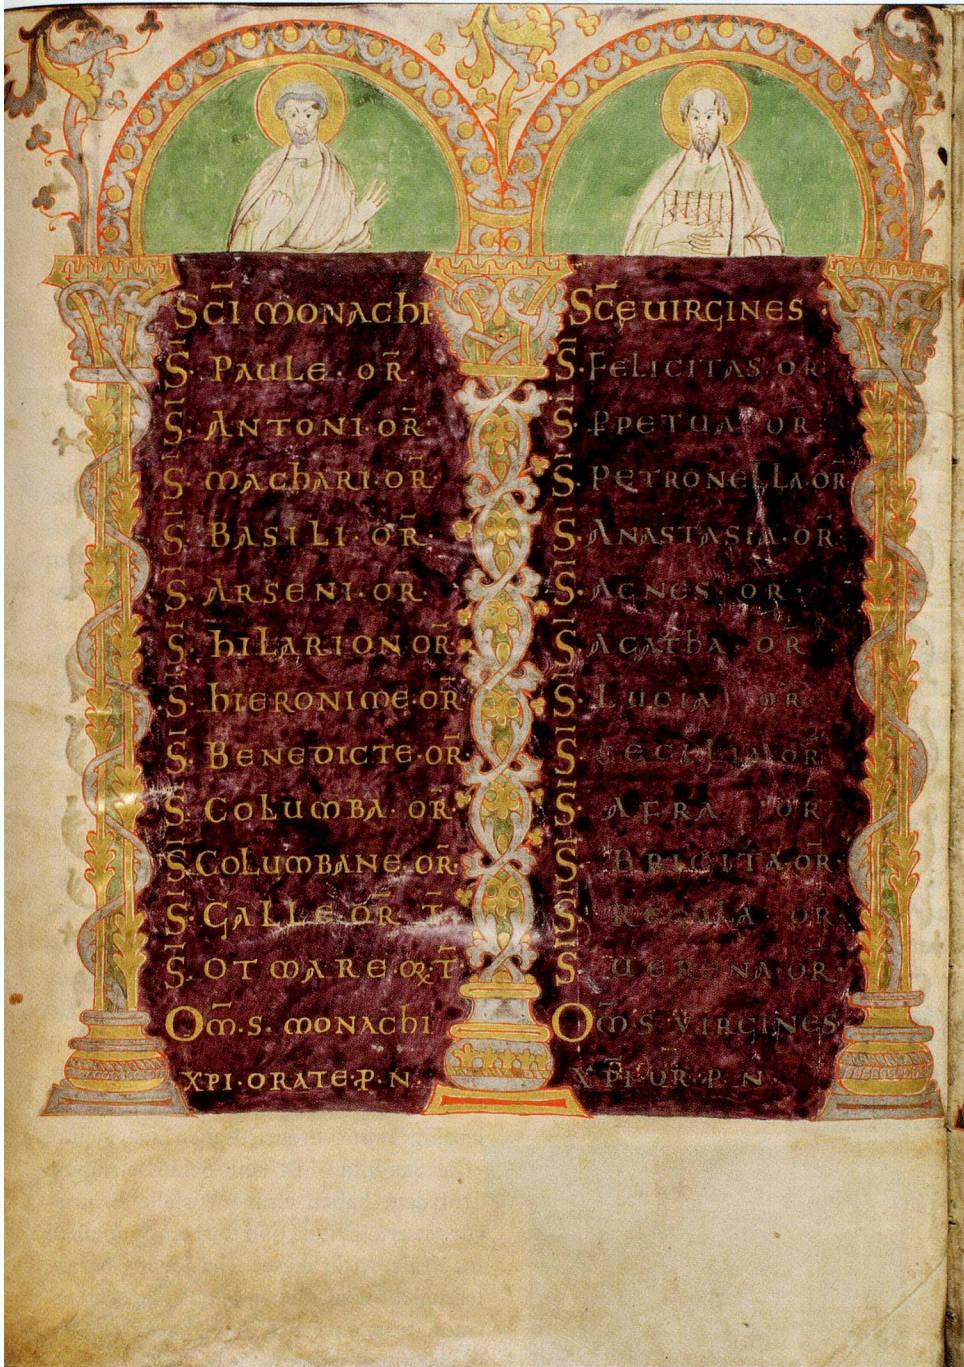 SC̄I MONACHI
S̄. PAULE · OR̄ ·
S̄. ANTONI · OR̄
S̄. MACHARI · OR̄
S̄. BASILI · OR̄ ·
S̄. ARSENI · OR̄ ·
S̄. HILARION OR̄
S̄. HIERONIME · OR̄
S̄. BENEDICTE · OR̄
S̄. COLUMBA · OR̄
S̄. COLUMBANE · OR̄
S̄. GALLE · OR̄ · T̄
S̄. OTMARE · OR̄ · T̄
OM̄ · S · MONACHI
XPI · ORATE · P̱ · N ·
SC̄E UIRGINES
S̄. FELICITAS · OR̄
S̄. P̱PETUA · OR̄
S̄. PETRONELLA · OR̄
S̄. ANASTASIA · OR̄
S̄. AGNES · OR̄ ·
S̄. AGATHA · OR̄
S̄. LUCIA OR̄
S̄. CECILIA OR̄
S̄. AFRA · OR̄
S̄. BRIGITA · OR̄
S̄. REGULA · OR̄
S̄. UERENA · OR̄ ·
OM̄ · S · VIRGINES
XP̄I · OR̄ · P · N ·